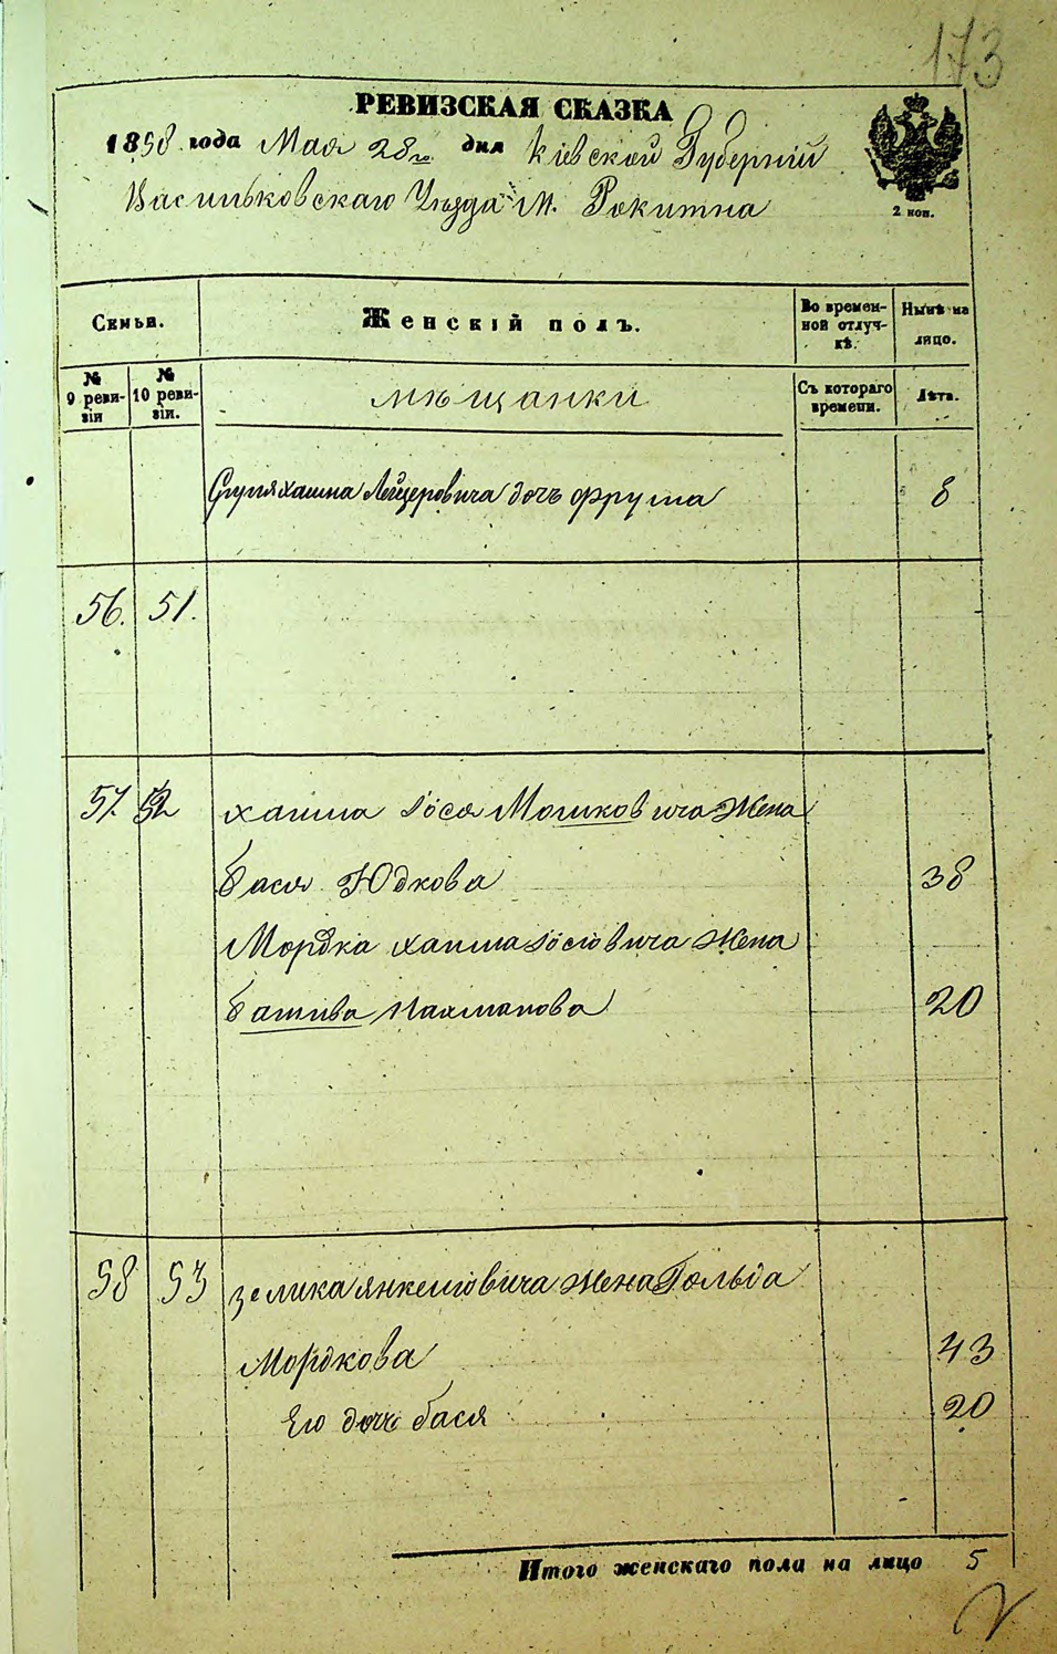 173
РЕВИЗСКАЯ СКАЗКА
1858 года Мая 28го дня Кіевской Губерніи
Васильковскаго Уѣзда М. Рокитна
2 коп.
Семьи.
Женскій полъ.
Во времен-
ной отлуч-
кѣ.
Нынѣ на
лицо.
№
9 реви-
зіи
№
10 реви-
зіи.
мѣщанки
Съ котораго
времени.
Лѣта.
Лейзеровича дочь Фрума 8
56. 51.
57. 52 хаима Іося Мошковича Жена
бася Юдкова 38
Мордка хаима Іосіовича Жена
башива Нахманова 20
58 53 зелика янкеліовича жена Гольда
Мордкова 43
Его дочь бася 20
Итого женскаго пола на лицо 5